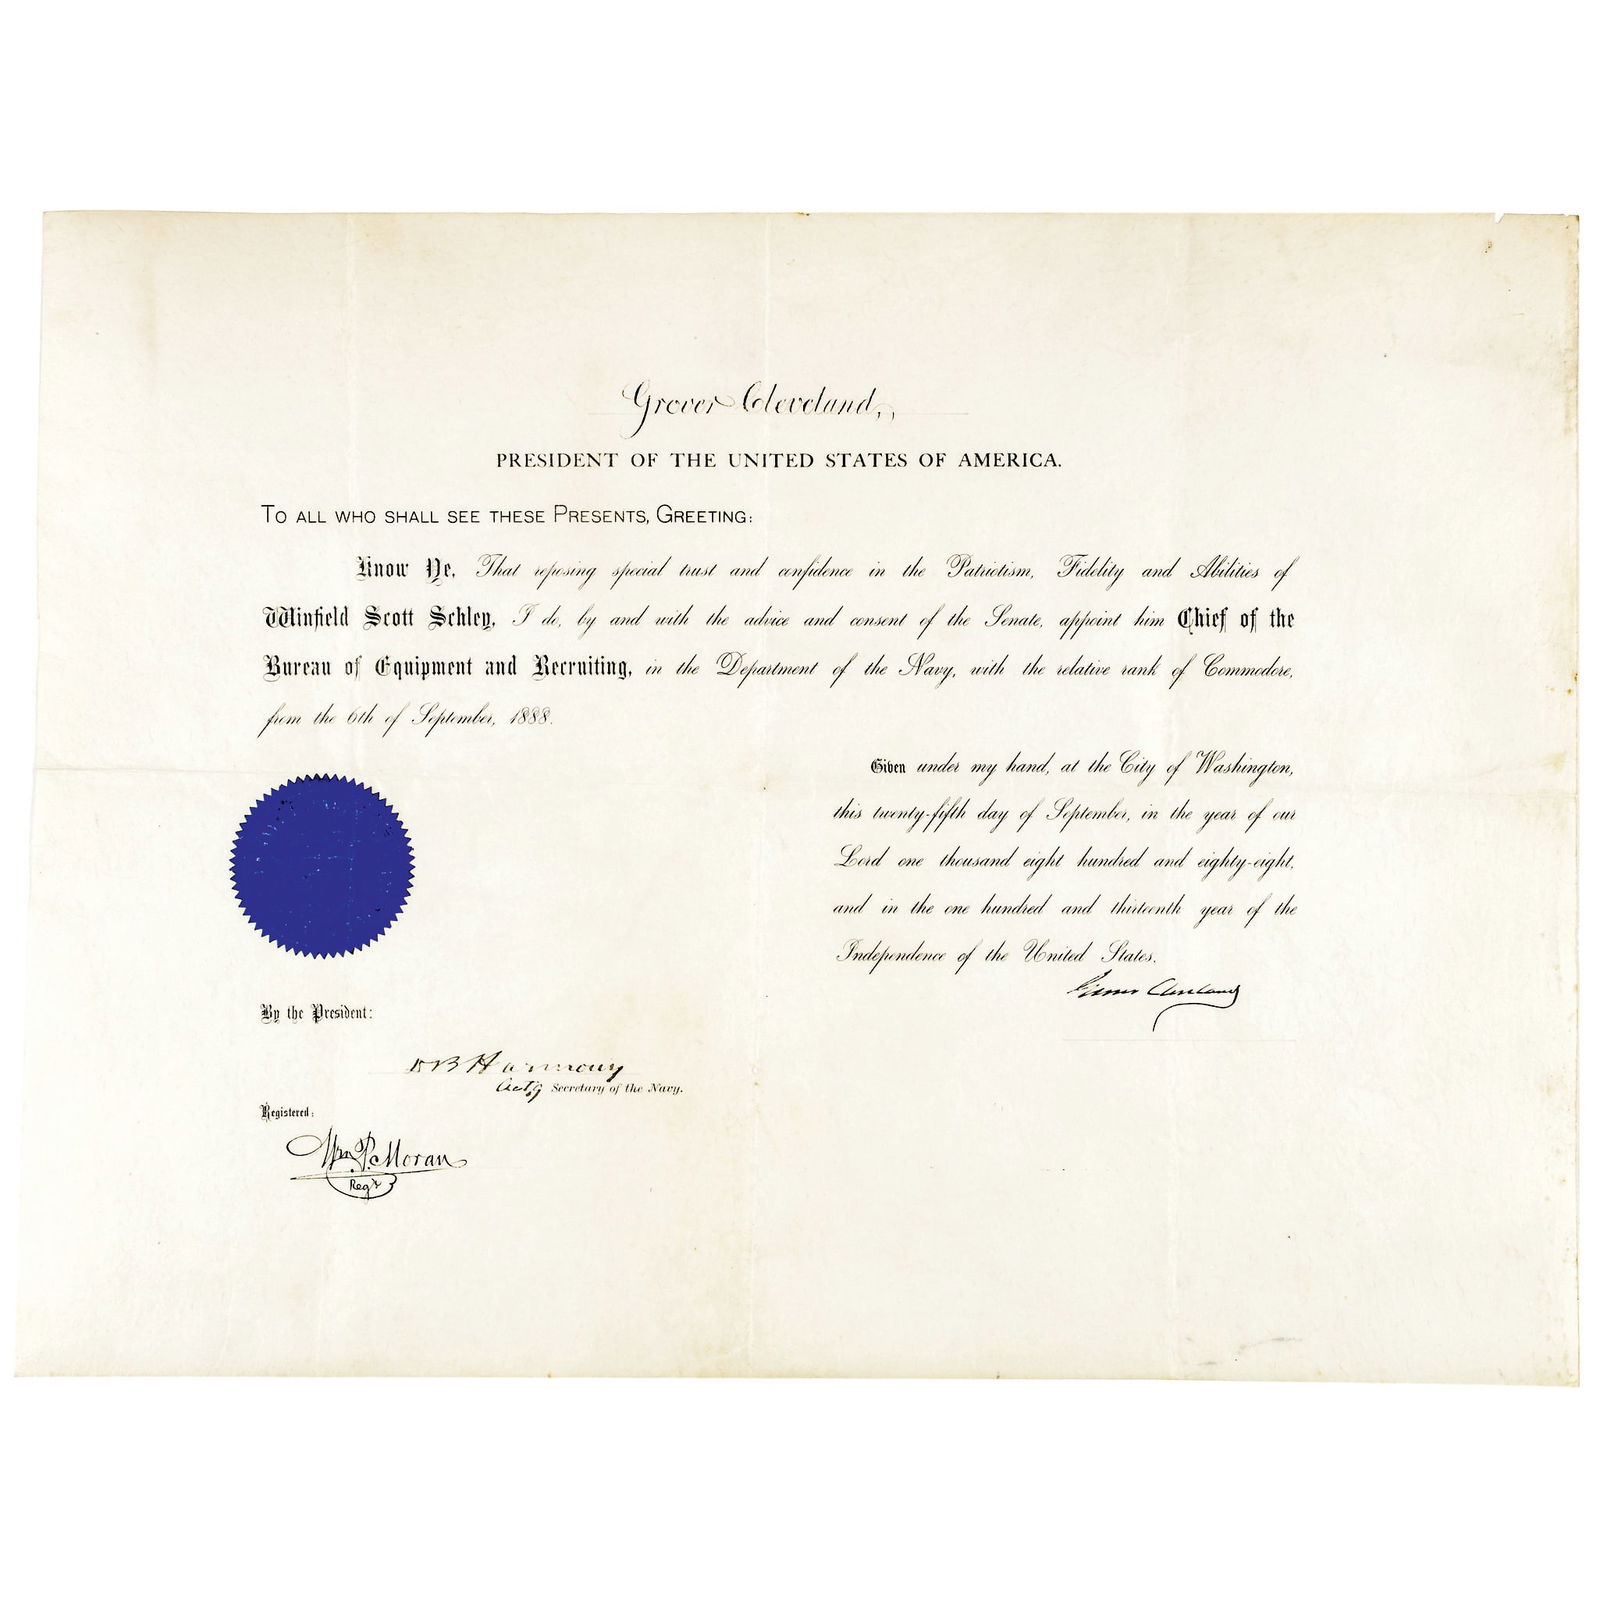 Grover Cleveland,,
PRESIDENT OF THE UNITED STATES OF AMERICA.
TO ALL WHO SHALL SEE THESE PRESENTS, GREETING:
Know Ye, That reposing special trust and confidence in the Patriotism, Fidelity and Abilities of
Winfield Scott Schley, I do, by and with the advice and consent of the Senate, appoint him Chief of the
Bureau of Equipment and Recruiting, in the Department of the Navy, with the relative rank of Commodore,
from the 6th of September, 1888.
Given under my hand, at the City of Washington,
this twenty-fifth day of September, in the year of our
Lord one thousand eight hundred and eighty-eight,
and in the one hundred and thirteenth year of the
Independence of the United States.
Grover Cleveland
By the President:
D B Harmony
Actg Secretary of the Navy.
Registered:
Wm P. Moran
Regr